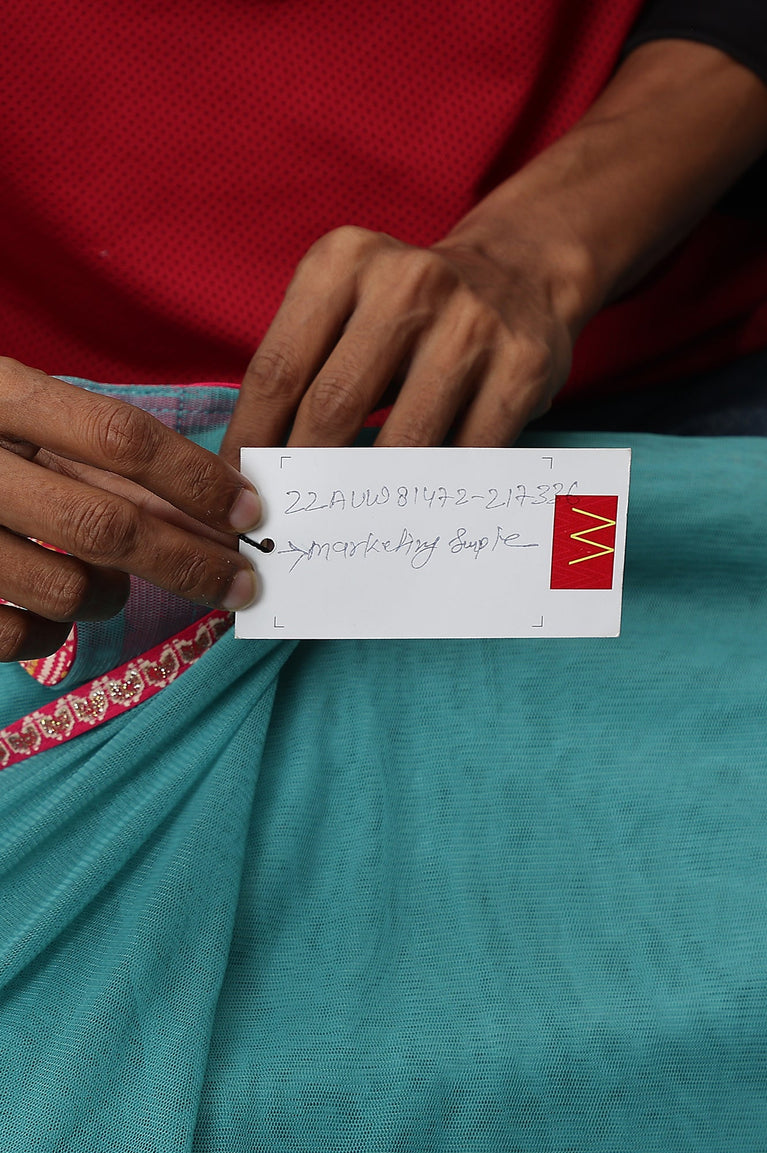 22AUW81472-217326
→ marketing Smple